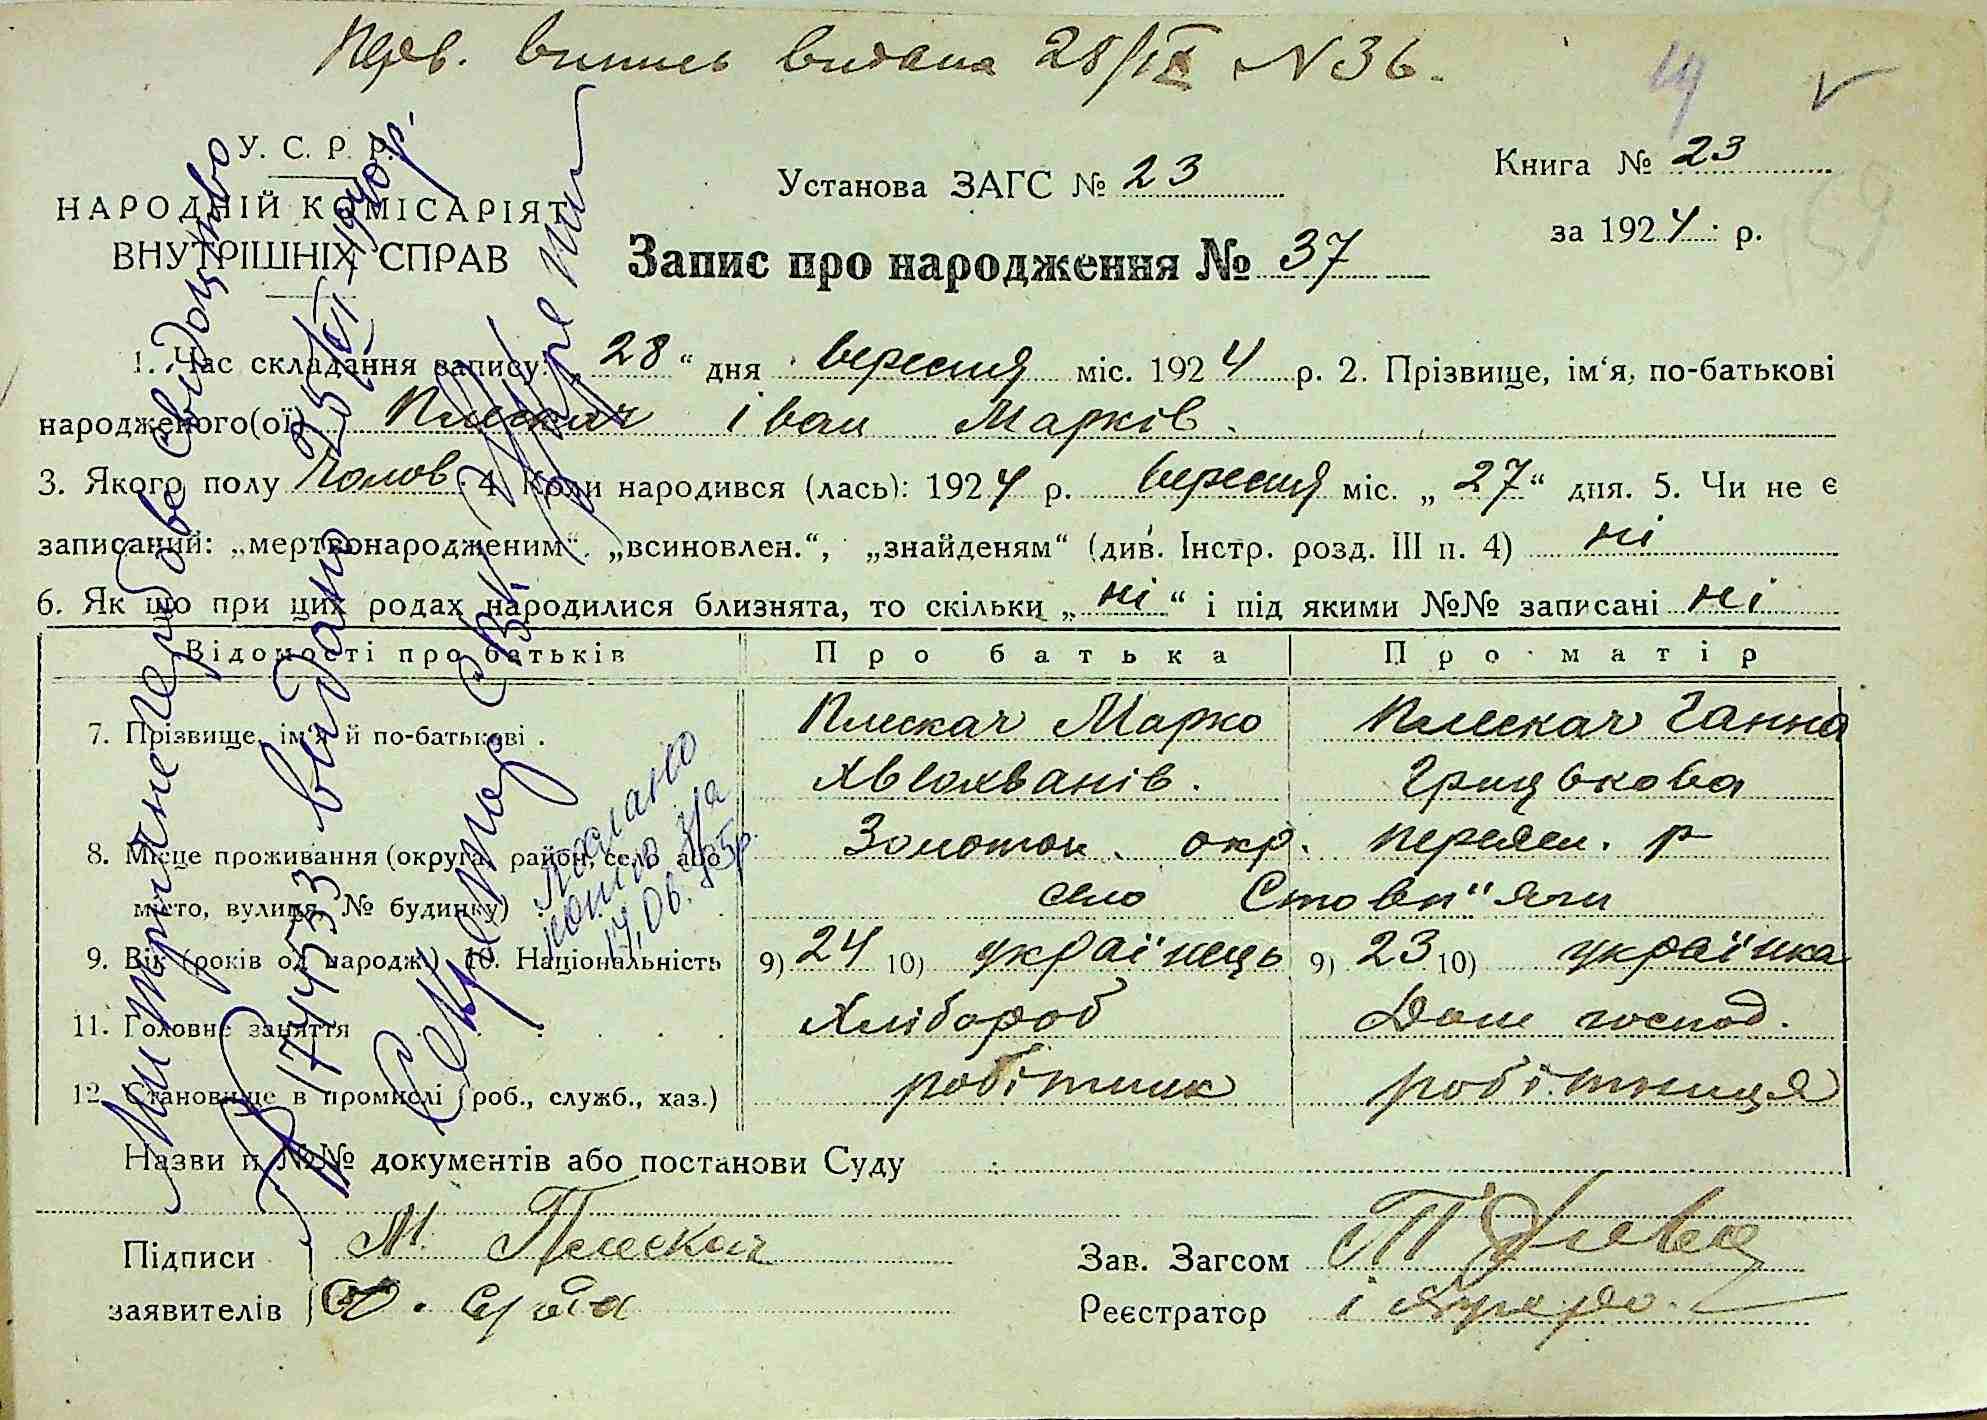 Перв. випись видана 28/IX N36.
19
У. С. Р. Р.
НАРОДНІЙ КОМІСАРІЯТ
ВНУТРІШНІХ СПРАВ
Установа ЗАГС № 23
Книга № 23
за 1924 р.
59
Запис про народження № 37
1. Час складання запису: „28“ дня вересня міс. 1924 р. 2. Прізвище, ім‘я, по-батькові
народженого(ої) Плескач Іван Марків.
3. Якого полу Чолов 4. Коли народився (лась): 1924 р. вересня міс. „27“ дня. 5. Чи не є
записаний: „мертвонародженим“, „всиновлен.“, „знайденям“ (див. Інстр. розд. III п. 4) ні
6. Як що при цих родах народилися близнята, то скільки „ні“ і під якими №№ записані ні
Відомості про батьків Про батька Про матір
7. Прізвище, ім‘я й по-батькові . Плескач Марко Плескач Ганна
Грицькова
8. Місце проживання (округа, район, село або Золотон. окр. Переясл. р
місто, вулиця, № будинку) село Стовп"яги
9. Вік (років од народж.) 10. Національність 9) 24 10) українець 9) 23 10) українка
11. Головне заняття Хлібороб Дом господ.
12. Становище в промислі (роб., служб., хаз.) робітник робітниця
Назви й №№ документів або постанови Суду
Підписи М. Плескач
заявителів
Зав. Загсом
Реєстратор
Митричне гербове свідоцтво
174533 видано 25/VI-1940р.
Секретар С/в.
Послано
копію з/а
14.06.